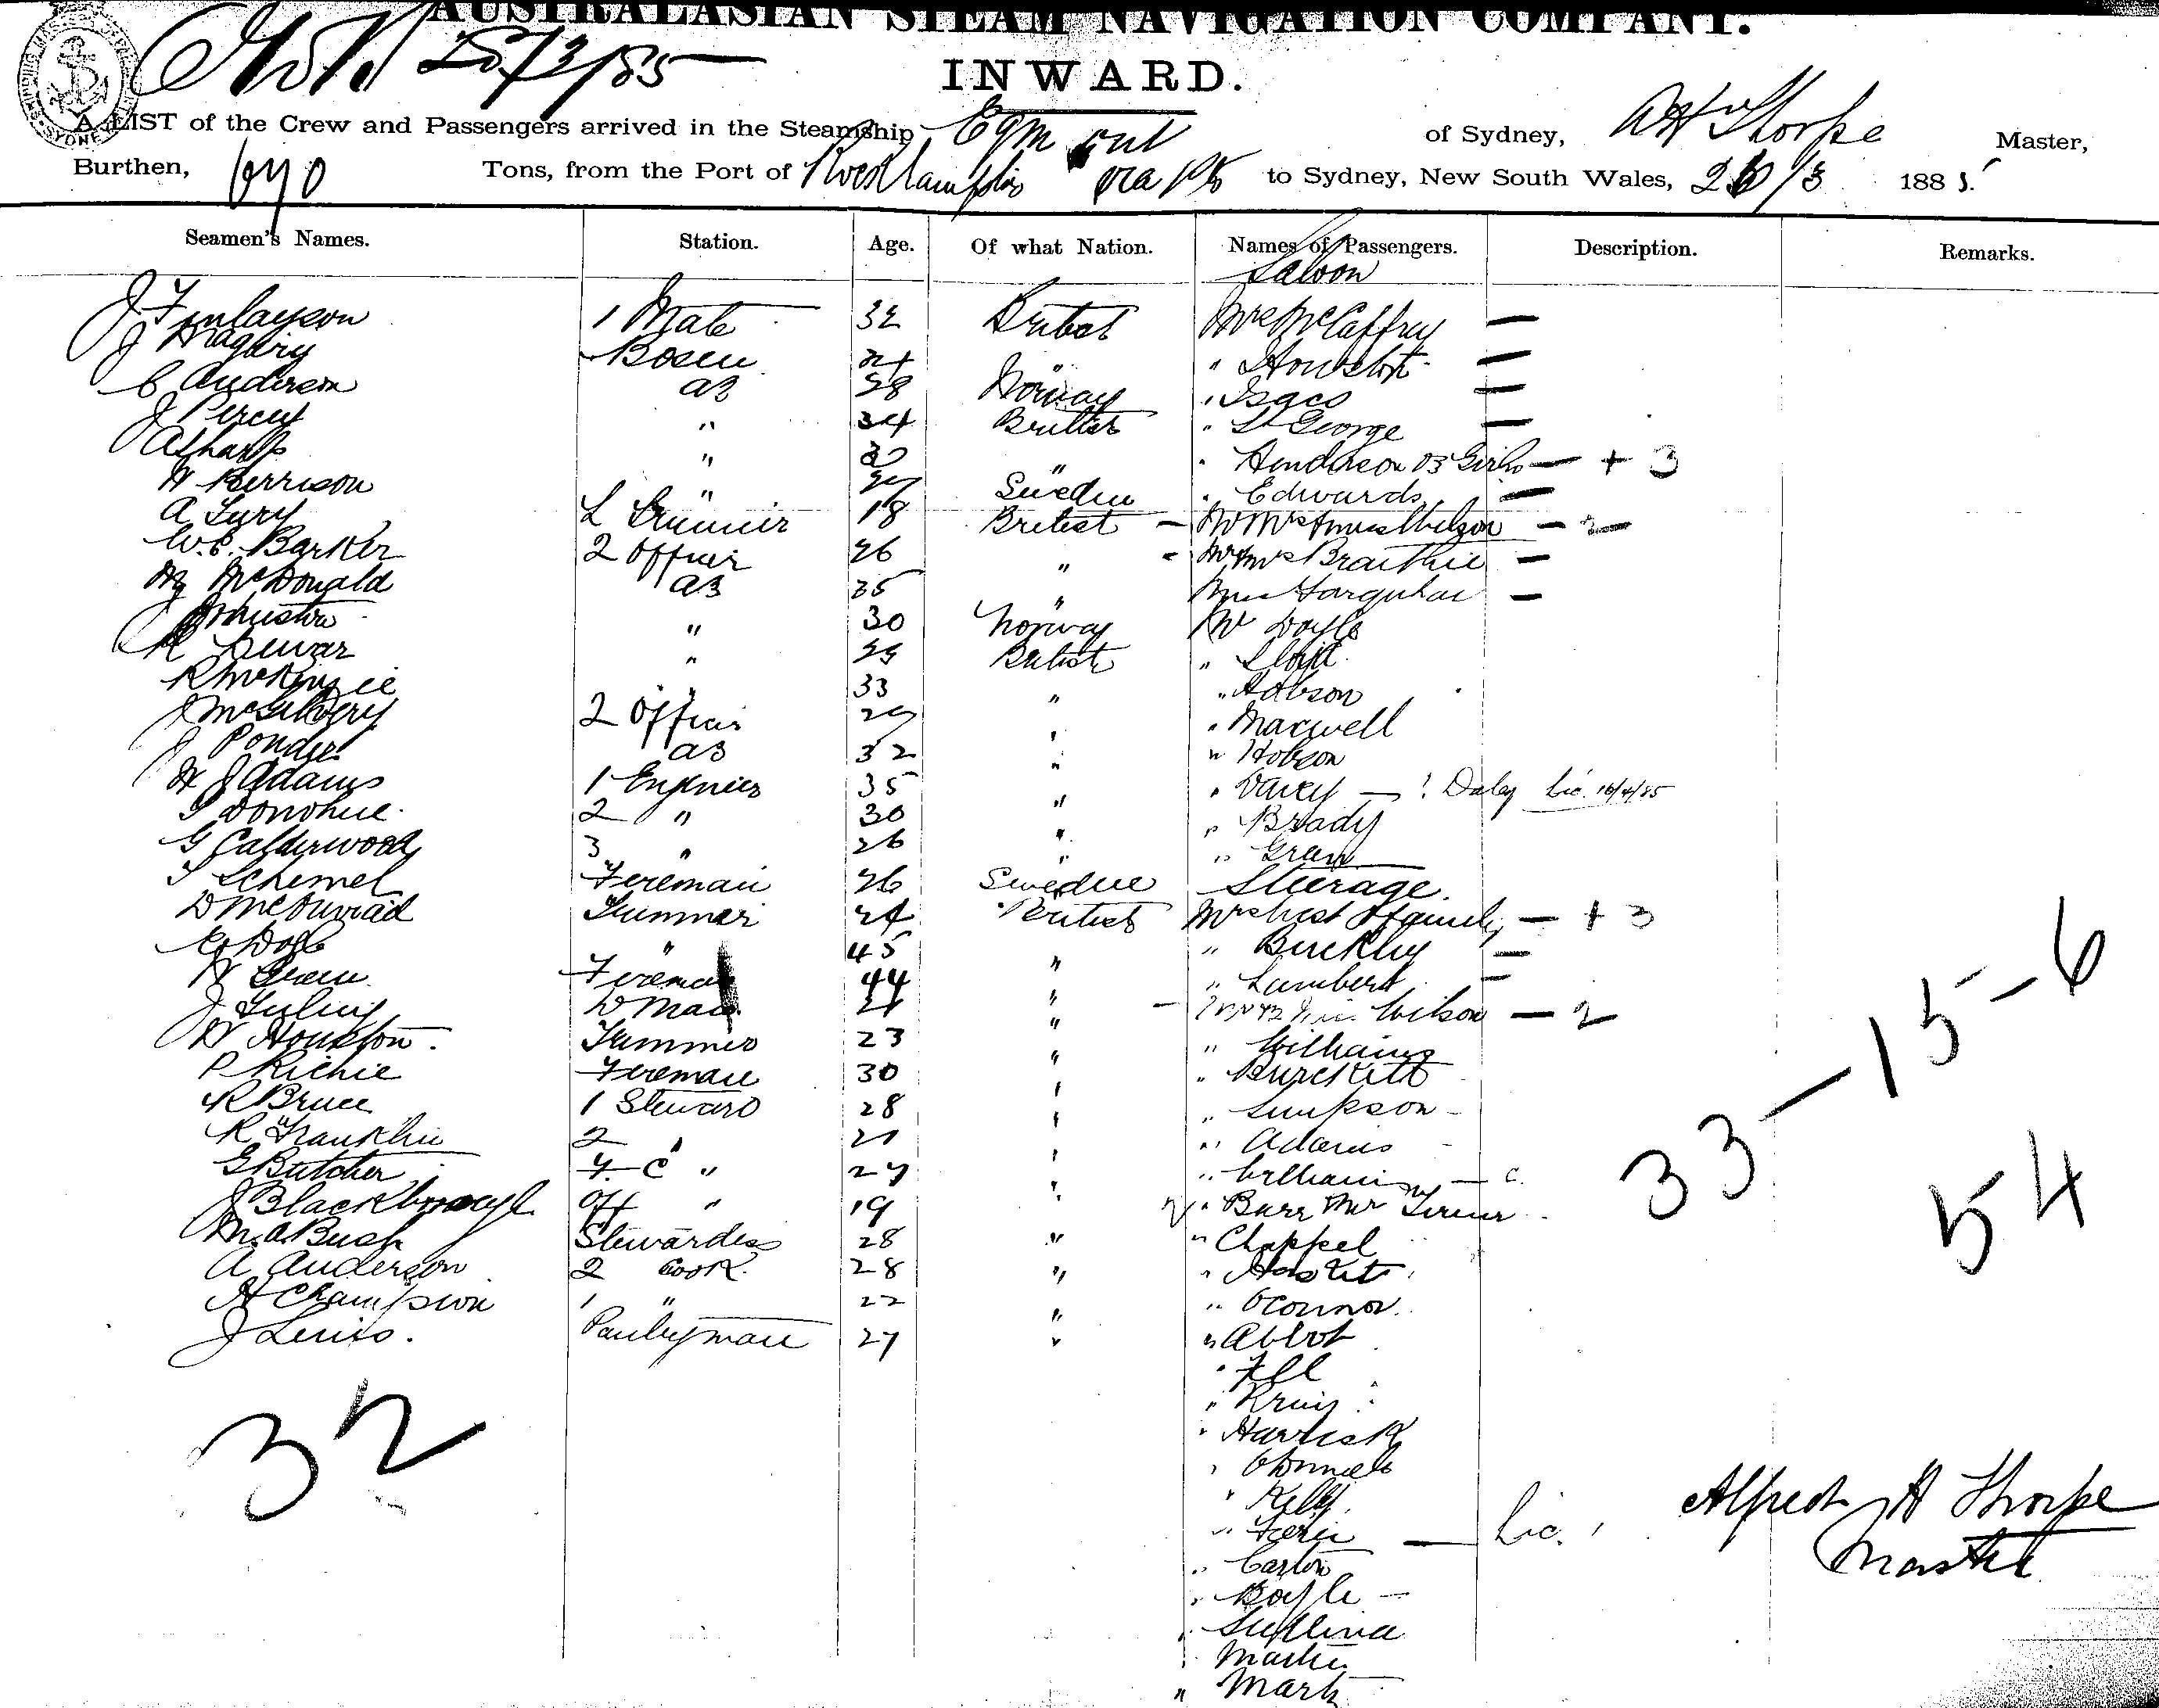 AUSTRALASIAN STEAM NAVIGATION COMPANY.
INWARD.
A LIST of the Crew and Passengers arrived in the Steamship Egmont of Sydney, AH Thorpe Master,
Burthen, 690 Tons, from the Port of Rockhampton to Sydney, New South Wales, 26/3 1885.
Seamen's Names. Station. Age. Of what Nation. Names of Passengers. Description. Remarks.
Saloon
J Finlayson 1 Mate 32 British Mrs McCaffrey —
J Bosen 24 " " —
C Anderson AB 28 Norway " Isaacs —
J Percy " 34 British " St George —
A Sharp " " " Henderson & 3 Girls — + 3
H Berrison " Sweden " Edwards —
A Fury L Trimmer 18 British — Wilson — 2 —
W.C. Barker 2 Officer 26 " Mr & Mrs —
McDonald AB 35 " Miss Farquhar —
Johnston " 30 Norway Mr Doyle
R Dewar " British " Lloyd
R McKenzie " 33 " " Hobson
J McGilvery 2 Officer 29 " " Maxwell
J Ponder AB 32 " " Hobson
H J Adams 1 Engineer 35 " " Davey — ? Daley Lic. 16/4/85
T Donohue 2 " 30 " " Brady
G Calderwood 3 " 26 " " Green
T Schimel Fireman 26 Sweden Steerage.
D Trimmer 24 British Mrs & family — + 3
" 45 " " Buckley —
H Green Fireman 44 " " Lambert —
J D Man 21 " — Wilson — 2
W Houston Trimmer 23 " " Williams
P Richie Fireman 30 " " Burckett
R Bruce 1 Steward 28 " " Simpson
R Franklin 2 " 21 " " Adams
G Butcher F. C " 27 " " William — C.
J Blackborough Off " 19 " " Barr
M.A Bush Stewardess 28 " " Chappel
A Anderson 2 Cook 28 " "
H Champion 1 " 22 " " O'Connor
J Lewis. Pantryman 27 " " Abbot
"
"
33 — 15 — 6
54
32
"
" O'Donnell
" Kelly
" — Lic.
" Carlton
" Boyle
" Sullivan
" Martin
" Mark
Alfred H Thorpe
Master